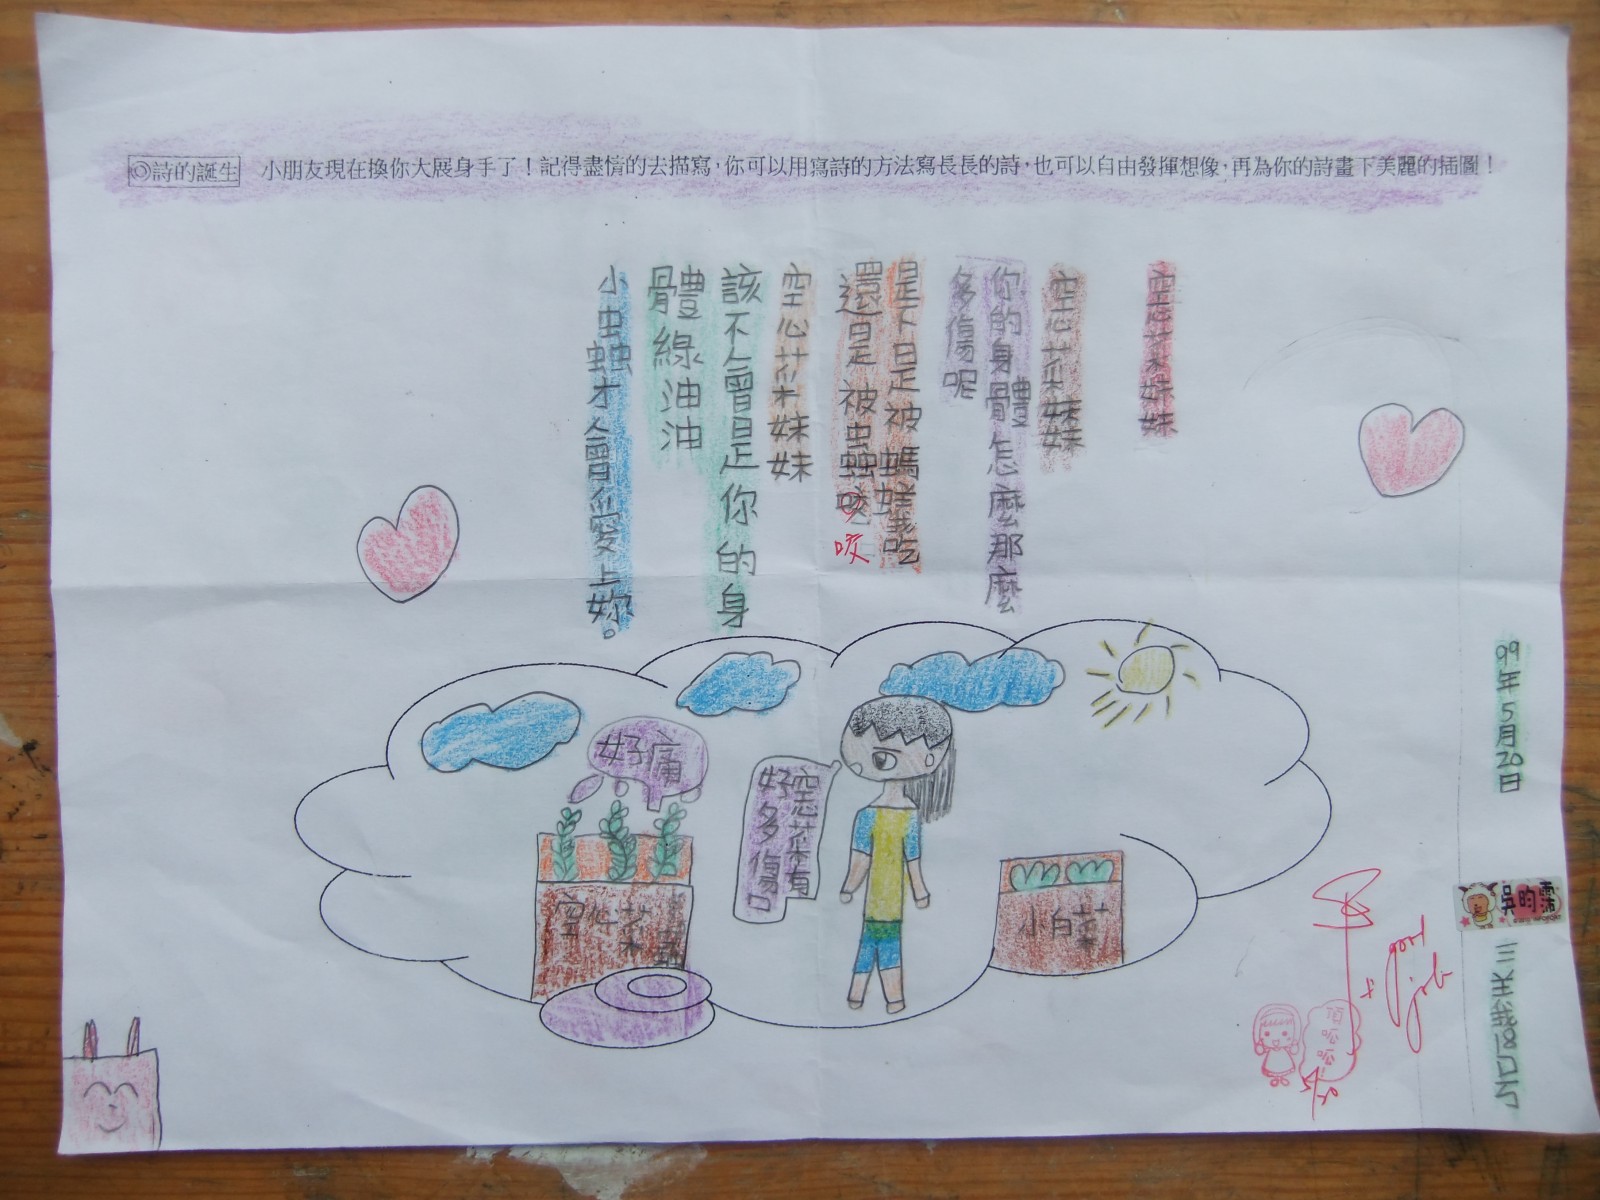 ◎詩的誕生 小朋友現在換你大展身手了！記得盡情的去描寫，你可以用寫詩的方法寫長長的詩，也可以自由發揮想像，再為你的詩畫下美麗的插圖！
空心菜妹妹
空心菜妹妹
你的身體怎麼那麼
多傷呢
是不是被螞蟻吃
還是被虫蟲咬
咬
空心菜妹妹
該不會是你的身
體綠油油
小虫蟲才會愛上妳。
好痛
空心菜有
好多傷口
空心菜
小白菜
99年5月20日
吳昀霈
good
job
頂呱呱
5/20